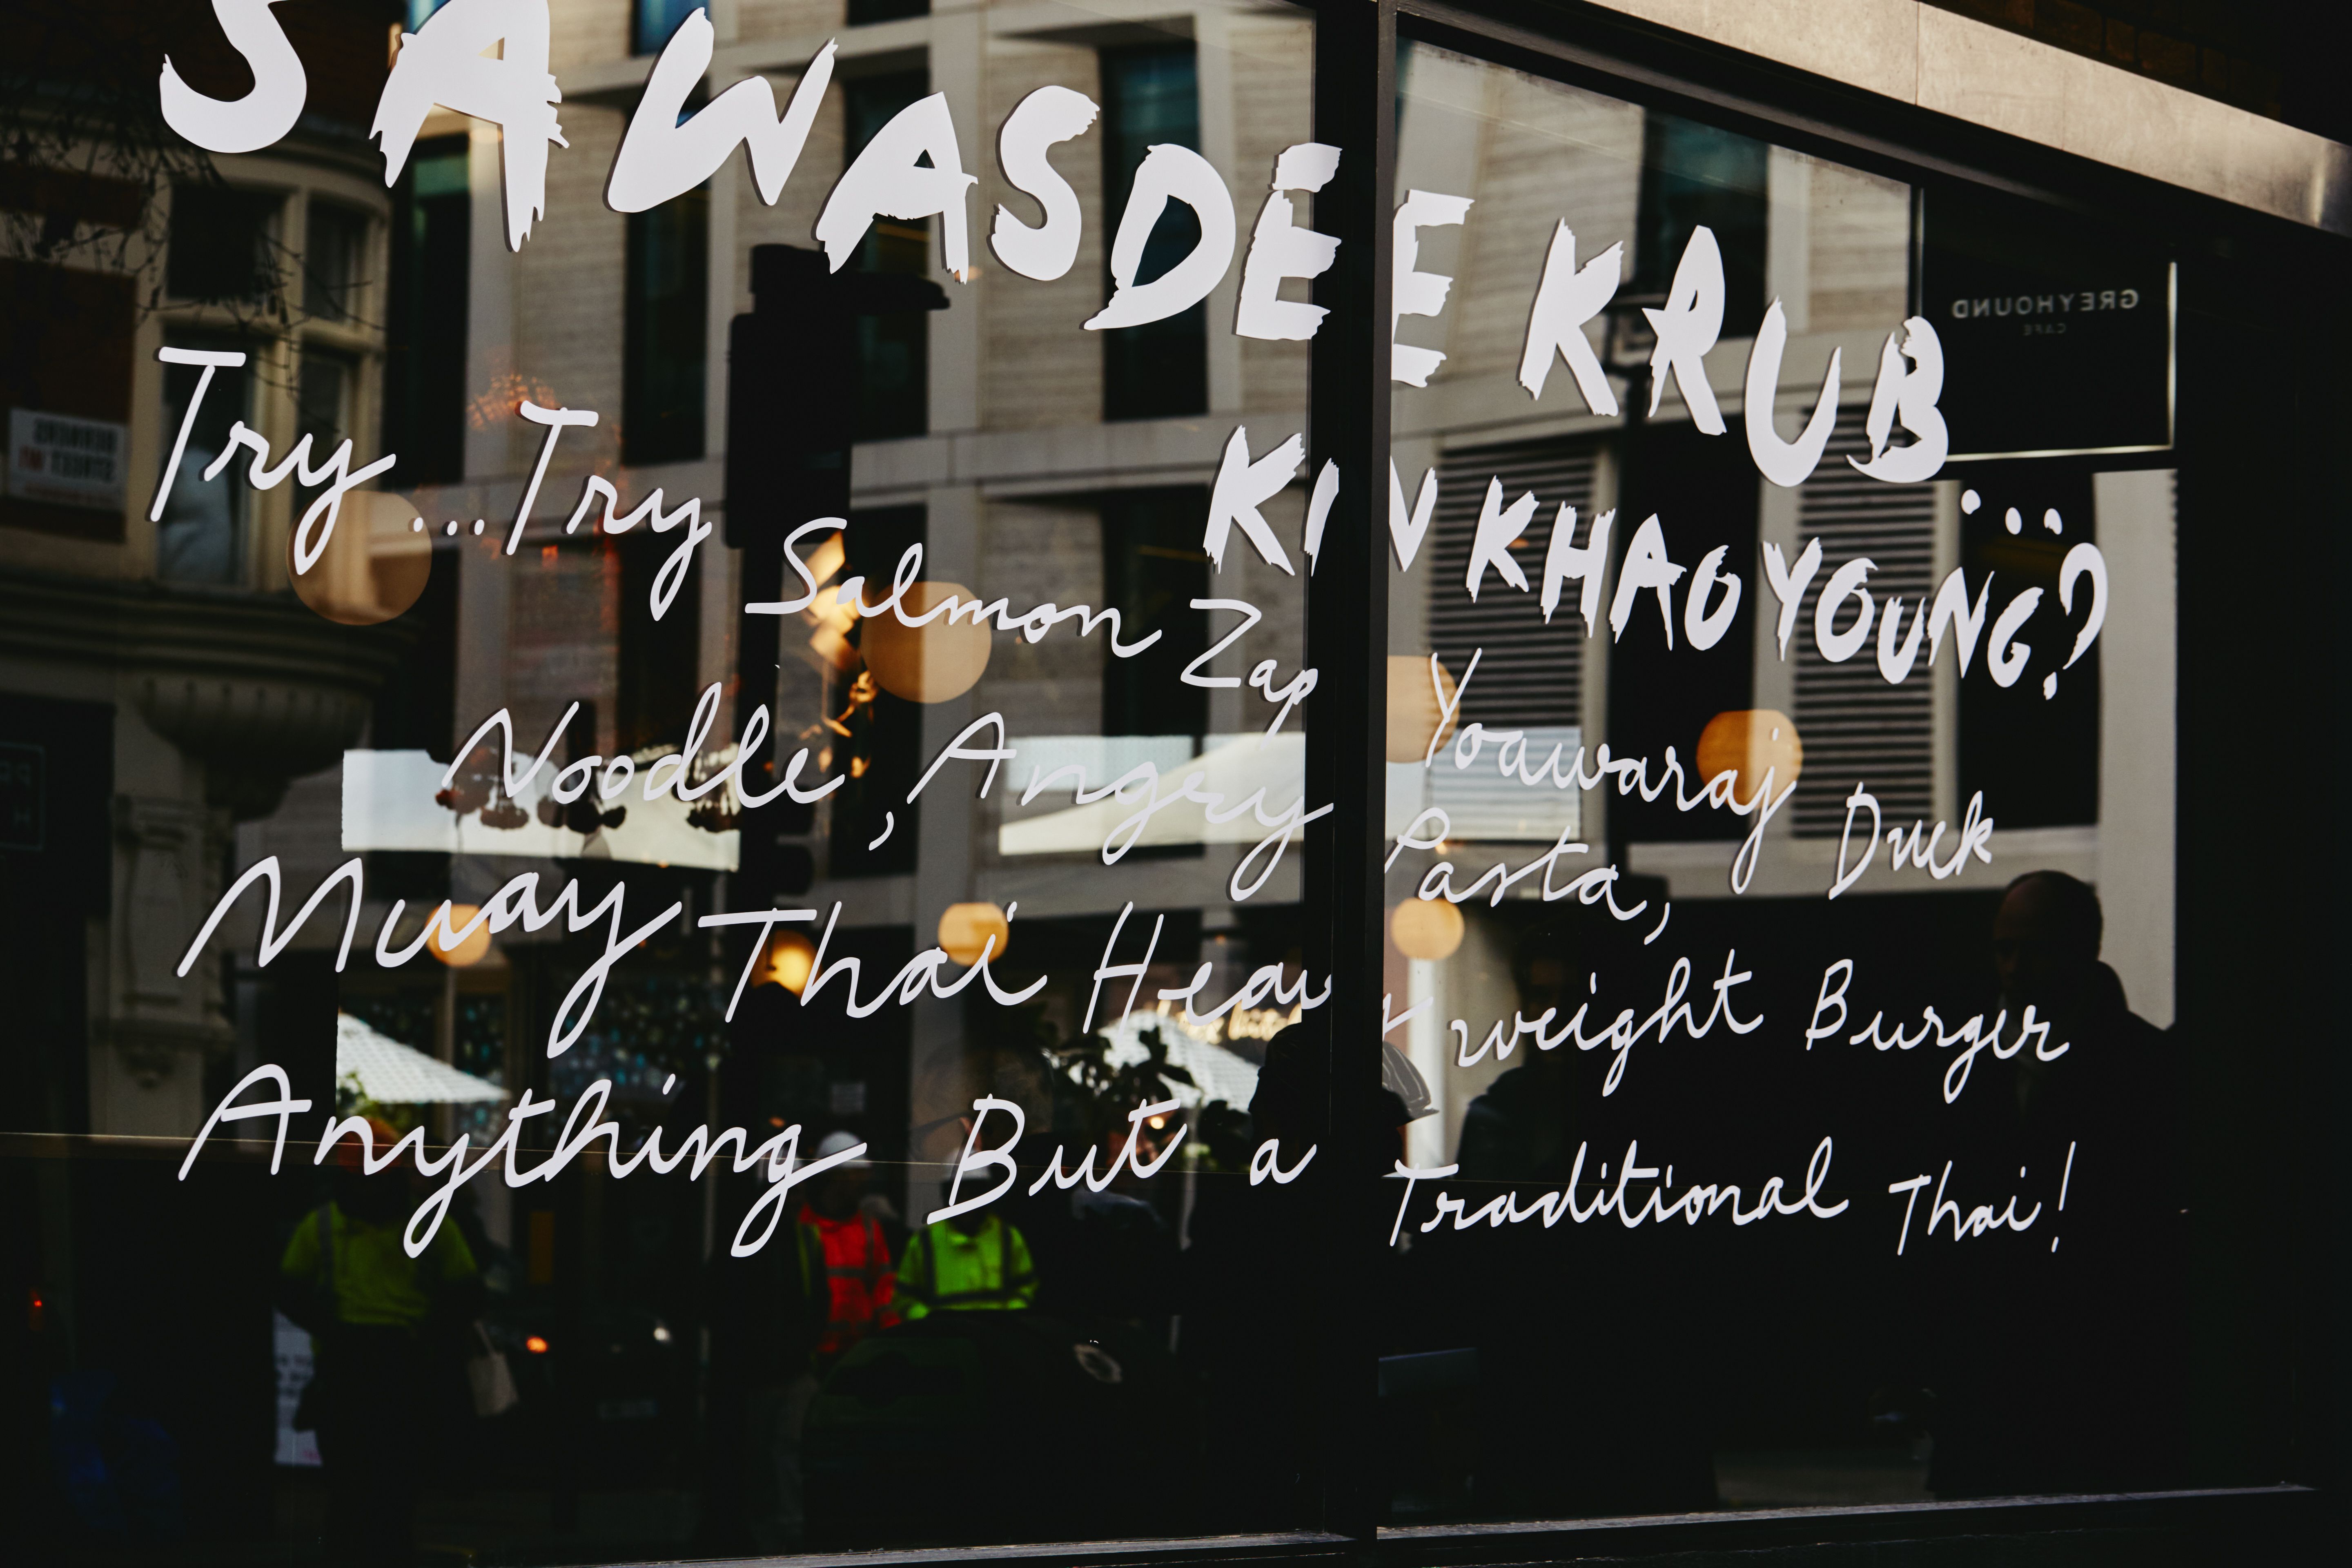 SAWASDEE KRUB...
KIN KHAO YOUNG?
Try...Try Salmon Zap Yoawaraj Duck
Noodle, Angry Pasta,
Muay Thai Heavy weight Burger
Anything But a Traditional Thai!
GREYHOUND
CAFE
BERNERS
STREET W1